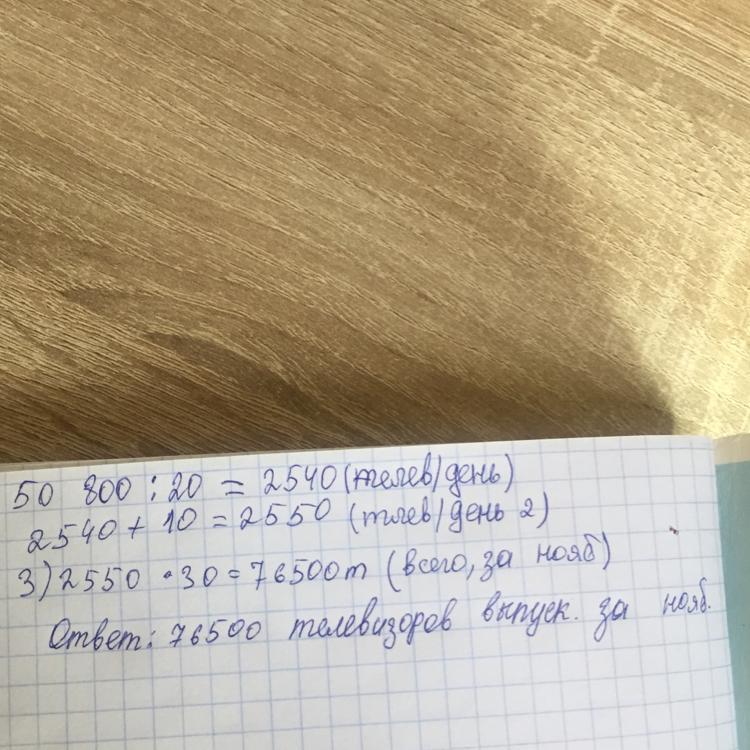 50 800 : 20 = 2540 (телев/день)
2540 + 10 = 2550 (тлев/день 2)
3) 2550 · 30 = 76500 т (всего, за нояб)
Ответ: 76500 телевизоров выпуск. за нояб.